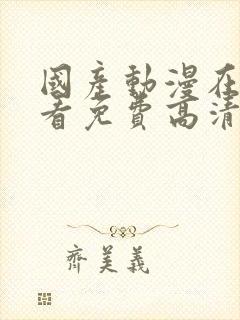 國產動漫在
看免費高清
齊美義